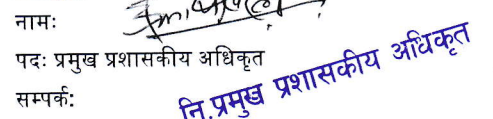 नाम:
पद: प्रमुख प्रशासकीय अधिकृत
सम्पर्क:
नि.प्रमुख प्रशासकीय अधिकृत